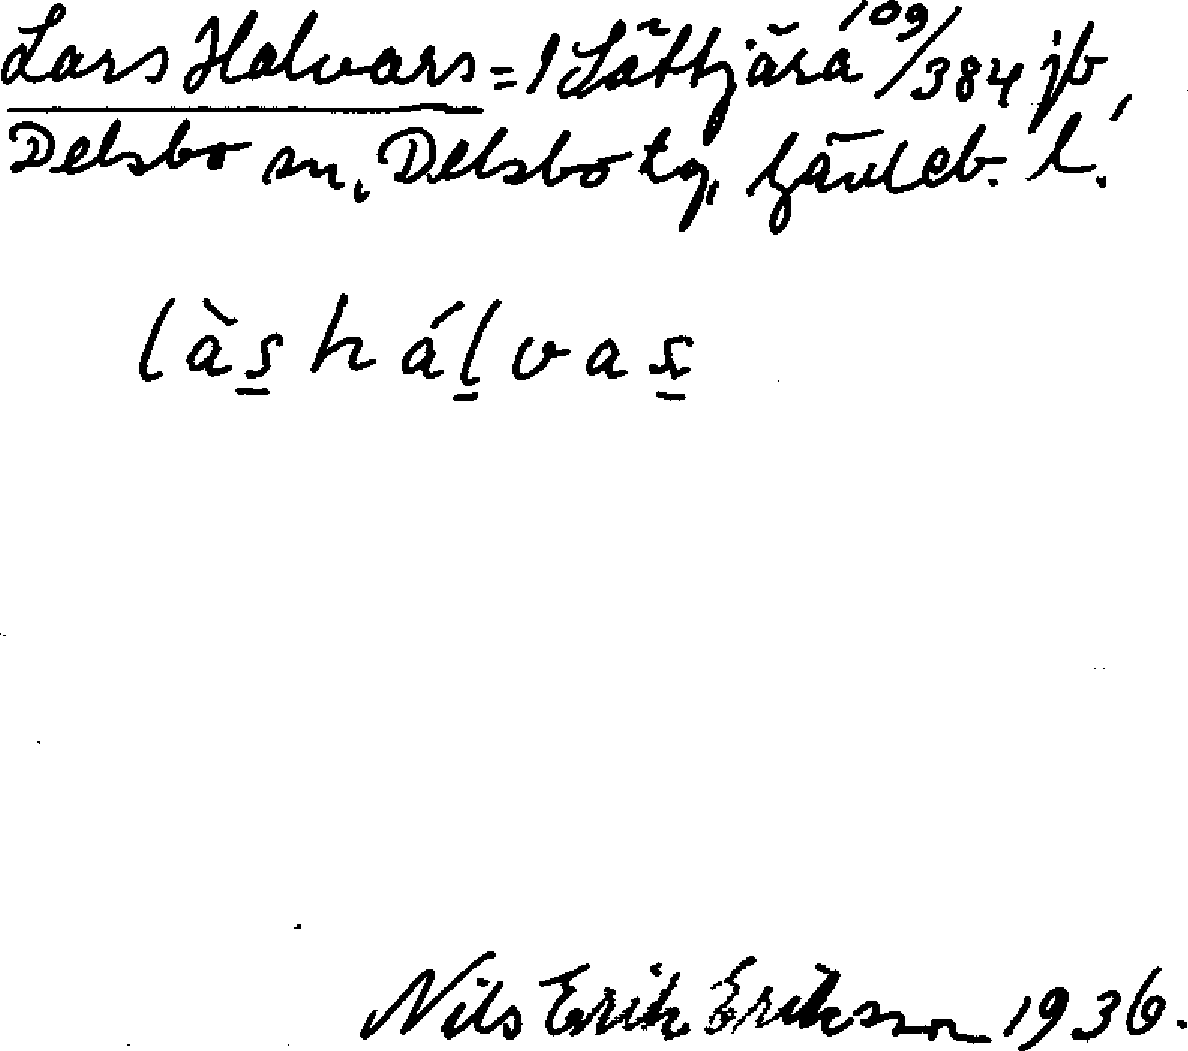 Lars Halvars = 1 Sättjära 109/384 jb,
Delsbo sn, Delsbo tg, Gävleb. l.
làs̲ hál̲vas̲
Nils Erik Eriksson 1936.